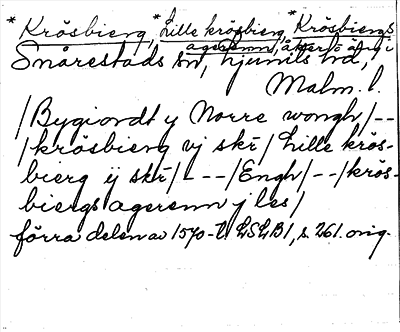 *Krösbierg, *Lille krösbierg, *Krösbiergs
agerenn, åker o äng i
Snårestads sn, Ljunits hd,
Malm. l.
/Bygiordt y Norre wongh/--
/krösbierg vj skr/ Lille krös-
bierg ij skr/---/Engh/--/krös-
biergs agerenn j les/
förra delen av 1570-t. LSLB1, s. 261. orig.